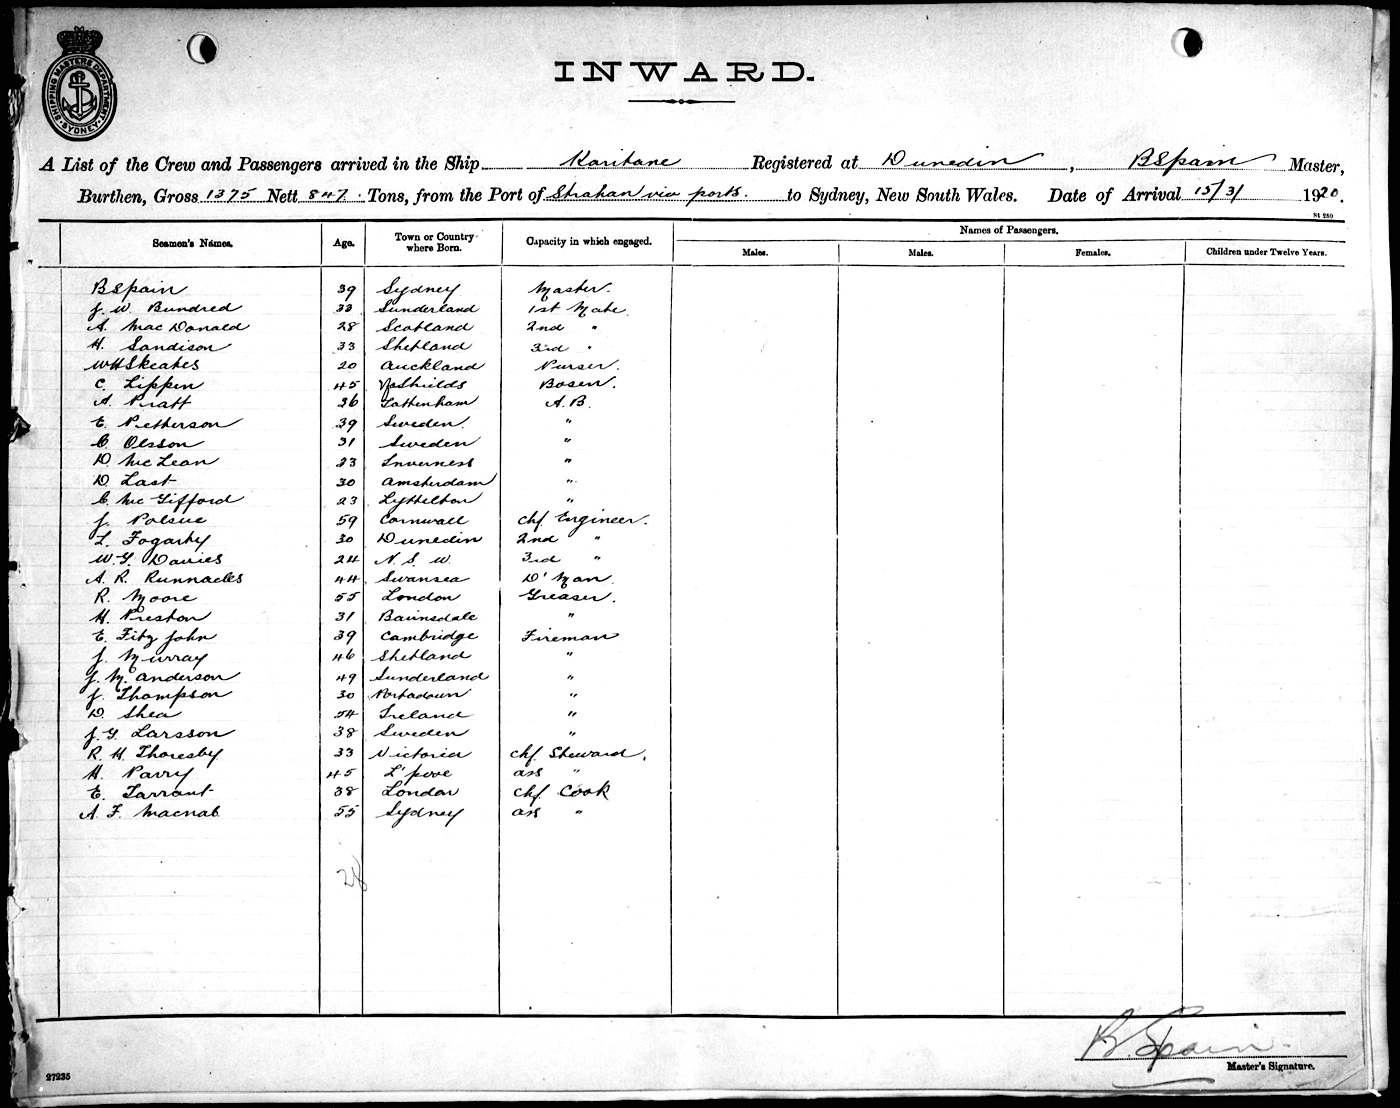 SHIPPING MASTERS DEPARTMENT
SYDNEY
INWARD.
A List of the Crew and Passengers arrived in the Ship Karitane Registered at Dunedin, B Spain Master,
Burthen, Gross 1375 Nett 847 Tons, from the Port of Strahan via ports. to Sydney, New South Wales. Date of Arrival 15/3/ 1920.
St 250
Seamen's Names. Age. Town or Country where Born. Capacity in which engaged. Names of Passengers.
Males. Males. Females. Children under Twelve Years.
B Spain 39 Sydney Master.
J. W. Bundred 33 Sunderland 1st Mate
A. Mac Donald 28 Scotland 2nd "
H. Sandison 33 Shetland 3rd "
W H Skeates 20 Auckland Purser.
C. Lippen 45 Shields Bosen.
A. Pratt 36 Tottenham A.B.
E. Petherson 39 Sweden. "
C. Olsson 31 Sweden "
D. McLean 23 Inverness "
D. Last 30 Amsterdam "
C. McGifford 23 Lyttelton "
J. Polsue 59 Cornwall Chf Engineer.
L. Fogarty 30 Dunedin 2nd "
W. G. Davies 24 N. S. W. 3rd "
A. R. Runnacles 44 Swansea D' Man
R. Moore 55 London Greaser.
H. Preston 31 Bairnsdale "
E. Fitzjohn 39 Cambridge Fireman
J. Murray 46 Shetland "
J. M. Anderson 49 Sunderland "
J. Thompson 30 Portadown "
D. Shea 54 Ireland "
J. G. Larsson 38 Sweden "
R. H. Thoresby 33 Victoria Chf Steward.
H. Parry 45 L'pool ass "
E. Tarrant 38 London Chf. Cook
A. F. Macnab 55 Sydney ass "
28
B. Spain
Master's Signature.
27235